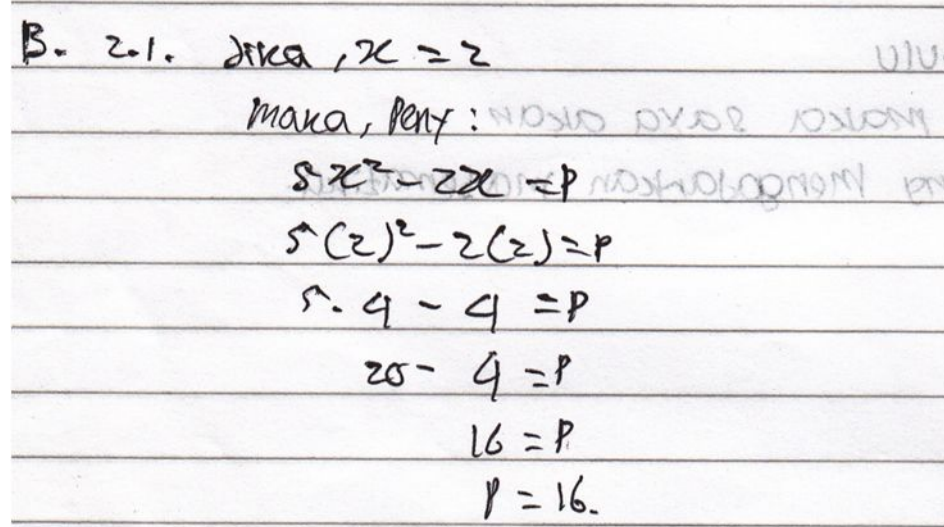 B. 2.1. Jika, x = 2
maka, Peny:
5x² - 2x = P
5(2)² - 2(2) = P
5. 4 - 4 = P
20 - 4 = P
16 = P
P = 16.